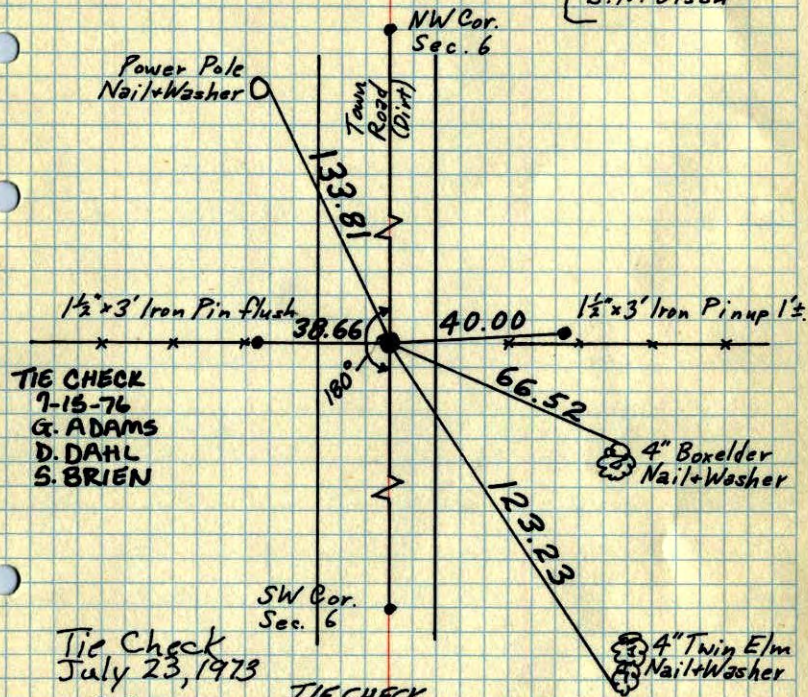 NW Cor.
Sec. 6
Power Pole
Nail+Washer
Town
Road
(Dirt)
133.81
1½"x3' Iron Pin flush
38.66
40.00
1½"x3' Iron Pin up 1'±
180°
66.52
TIE CHECK
7-15-76
G. ADAMS
D. DAHL
S. BRIEN
4" Boxelder
Nail+Washer
123.23
SW Cor.
Sec. 6
Tie Check
July 23, 1973
4" Twin Elm
Nail+Washer
TIE CHECK